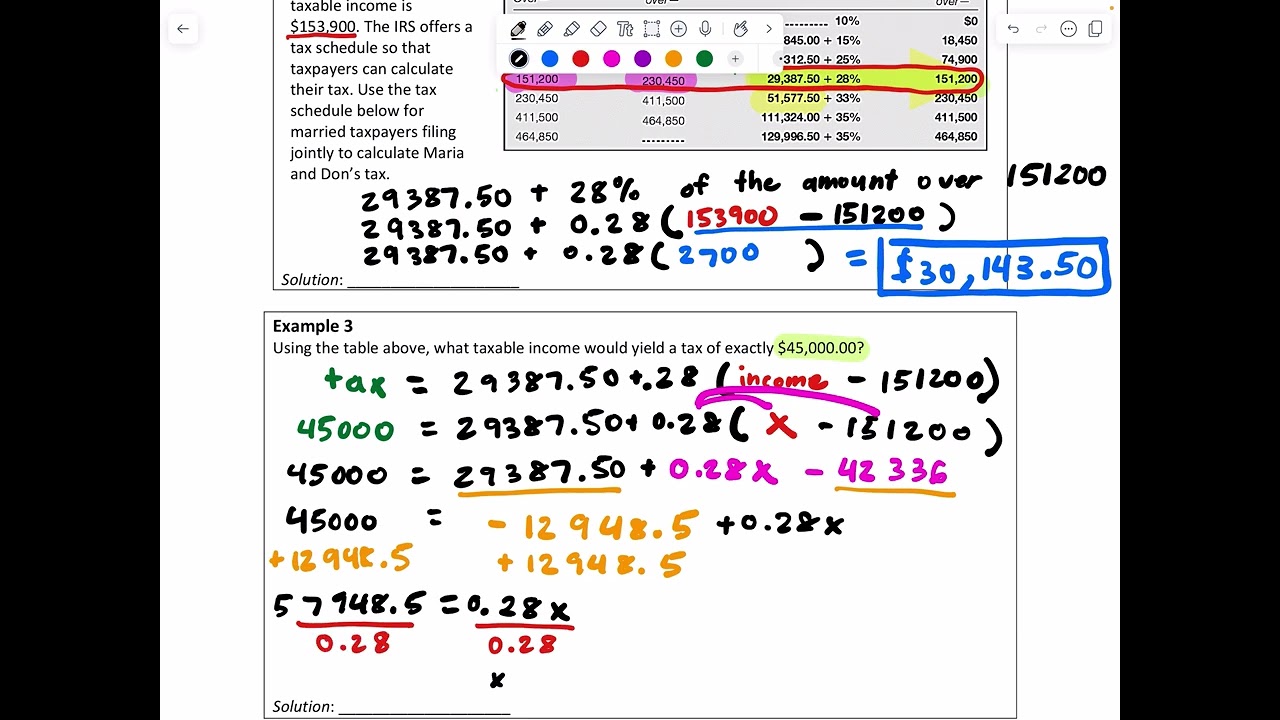 taxable income is
$153,900. The IRS offers a
tax schedule so that
taxpayers can calculate
their tax. Use the tax
schedule below for
married taxpayers filing
jointly to calculate Maria
and Don's tax.
over—
--------- 10% $0
845.00 + 15% 18,450
312.50 + 25% 74,900
151,200 230,450 29,387.50 + 28% 151,200
230,450 411,500 51,577.50 + 33% 230,450
411,500 464,850 111,324.00 + 35% 411,500
464,850 --------- 129,996.50 + 35% 464,850
29387.50 + 28% of the amount over 151200
29387.50 + 0.28 (153900 - 151200)
29387.50 + 0.28 (2700 ) = $30,143.50
Solution: ____________________
Example 3
Using the table above, what taxable income would yield a tax of exactly $45,000.00?
tax = 29387.50 + .28 (income - 151200)
45000 = 29387.50 + 0.28 ( x - 151200 )
45000 = 29387.50 + 0.28x - 42336
45000 = - 12948.5 + 0.28x
+12948.5 + 12948.5
57948.5 = 0.28x
0.28 0.28
x
Solution: ____________________